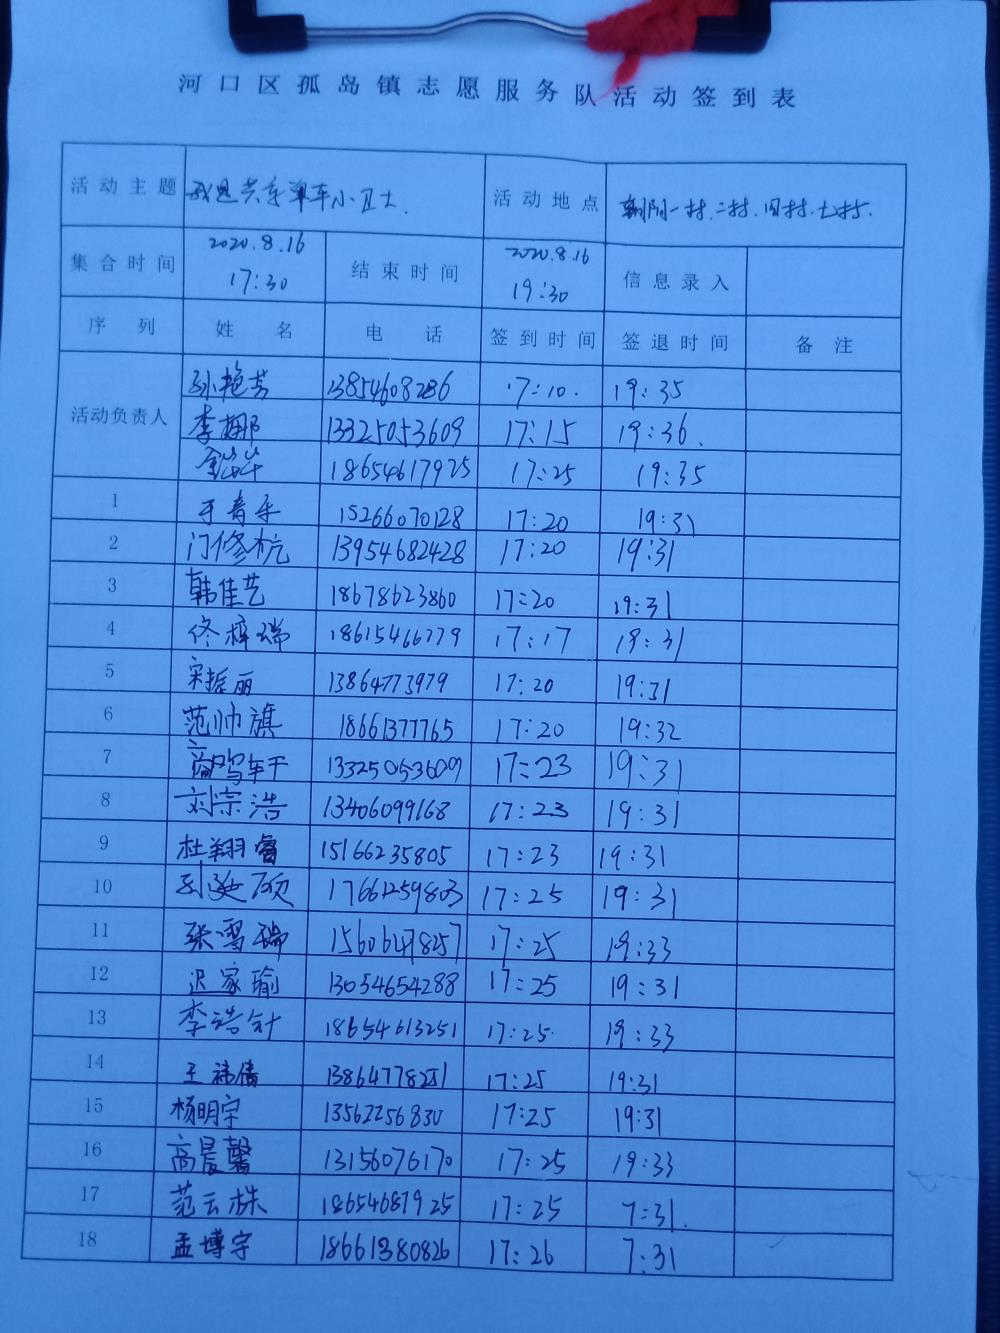 河口区孤岛镇志愿服务队活动签到表
活动主题 我是共享单车小卫士. 活动地点 朝阳一村.二村.四村.七村.
集合时间 2020.8.16 17:30 结束时间 2020.8.16 19:30 信息录入
序列 姓名 电话 签到时间 签退时间 备注
活动负责人 孙艳芳 13854608286 17:10. 19:35
李娜 13325053609 17:15 19:36.
18654617925 17:25 19:35
1 15266070128 17:20 19:31
2 门修杭 13954682428 17:20 19:31
3 韩佳艺 18678623860 17:20 19:31
4 佟梓瑞 18615466779 17:17 19:31
5 宋振丽 13864773979 17:20 19:31
6 范帅旗 18661377765 17:20 19:32
7 商鸣轩 13325053609 17:23 19:31
8 刘宗浩 13406099168 17:23 19:31
9 杜翔睿 15166235805 17:23 19:31
10 17661259803 17:25 19:31
11 张雪瑞 15606478257 17:25 19:33
12 迟家瑜 13054654288 17:25 19:31
13 李浩 18654613251 17:25. 19:33
14 王祎倩 13864778251 17:25 19:31
15 杨明宇 13562256830 17:25 19:31
16 高晨馨 13156076170 17:25 19:33
17 范云株 18654687925 17:25 7:31.
18 孟博宇 18661380826 17:26 7:31